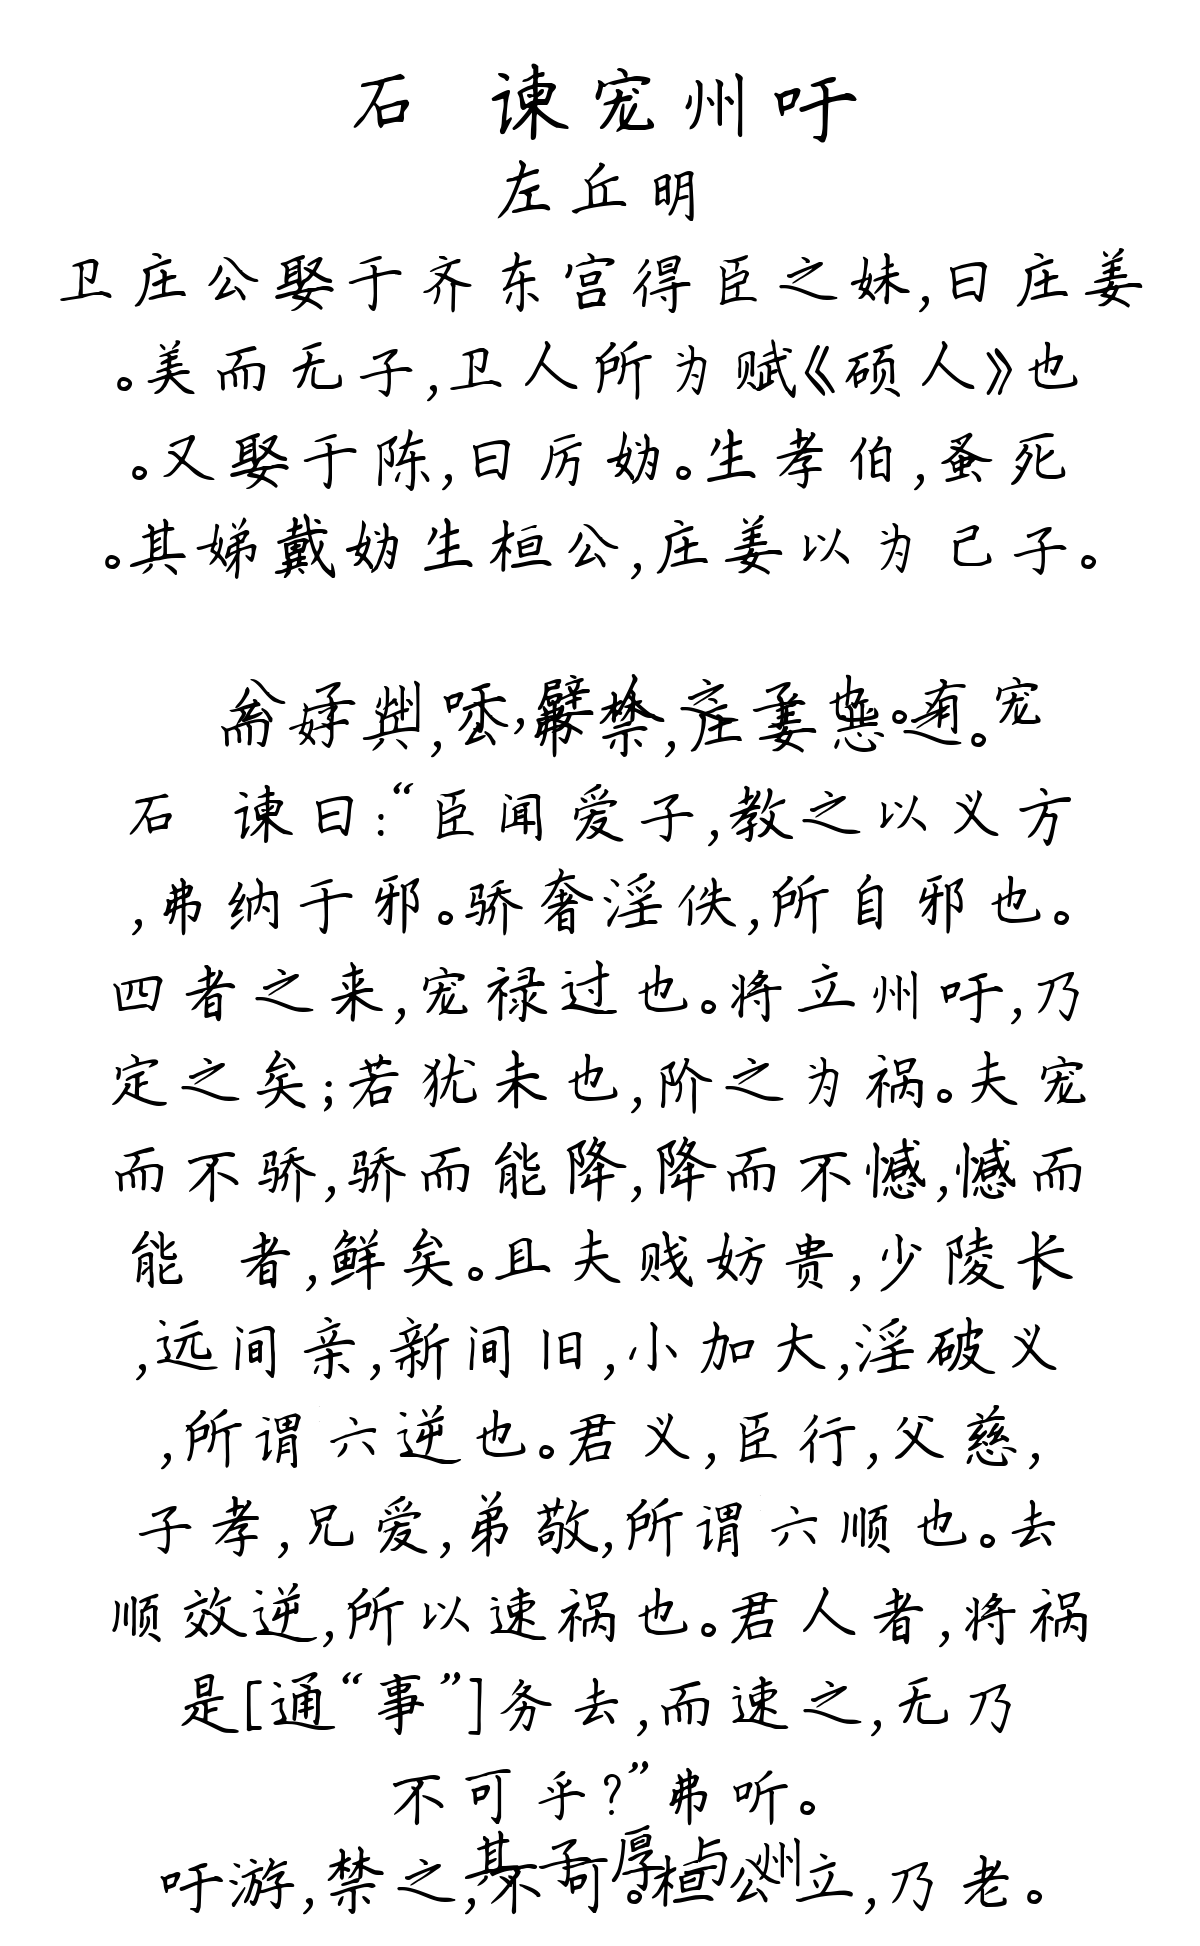 石 谏宠州吁
左丘明
卫庄公娶于齐东宫得臣之妹,曰庄姜
。美而无子,卫人所为赋《硕人》也
。又娶于陈,曰厉妫。生孝伯,蚤死
。其娣戴妫生桓公,庄姜以为己子。
公子州吁,嬖人之子也。有宠
而好兵,公弗禁,庄姜恶之。
石 谏曰:“臣闻爱子,教之以义方
,弗纳于邪。骄奢淫佚,所自邪也。
四者之来,宠禄过也。将立州吁,乃
定之矣;若犹未也,阶之为祸。夫宠
而不骄,骄而能降,降而不憾,憾而
能 者,鲜矣。且夫贱妨贵,少陵长
,远间亲,新间旧,小加大,淫破义
,所谓六逆也。君义,臣行,父慈,
子孝,兄爱,弟敬,所谓六顺也。去
顺效逆,所以速祸也。君人者,将祸
是[通“事”]务去,而速之,无乃
不可乎?”弗听。
其子厚与州
吁游,禁之,不可。桓公立,乃老。